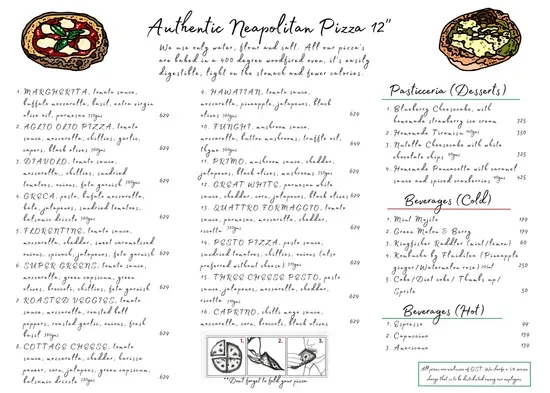 Authentic Neapolitan Pizza 12"
We use only water, flour and salt. All our pizza's
are baked in a 400 degree woodfired oven, it's easily
digestible, light on the stomach and fewer calories.
1. MARGHERITA, tomato sauce,
buffalo mozzarella, basil, extra virgin
olive oil, parmesan 330gms 629
2. AGLIO OLIO PIZZA, tomato
sauce, mozzarella, chillies, garlic,
capers, black olives 629
3. DIAVOLO, tomato
sauce,
mozzarella, chillies, sundried
tomatoes, onions, feta garnish 629
4. GRECA, pesto, bufalo mozzarella,
feta, jalapenos, sundried tomatoes,
balsamic drizzle 629
5. FLORENTINE, tomato sauce,
mozzarella, cheddar, sweet caramalised
onions, spinach, jalapenos, feta garnish 629
6. SUPER GREENS, tomato sauce,
mozzarella, green capsicum, green
olives, brocoli, chillies, feta garnish 629
7. ROASTED VEGGIES, tomato
sauce, mozzarella, roasted bell
peppers, roasted garlic, onions, fresh
basil 629
8. COTTAGE CHEESE, tomato
sauce, mozzarella, cheddar, harissa
paneer, corn, jalapenos, green capsicum,
balsamic drizzle 629
9. HAWAIIAN, tomato sauce,
mozzarella, pineapple, jalapenos, black
olives 629
10. FUNGHI, mushroom sauce,
mozzarella, button mushrooms, truffle oil,
thyme 649
11. PRIMO, mushroom sauce, cheddar,
jalapenos, black olives, mushrooms 629
12. GREAT WHITE, parmesan white
sauce, cheddar, corn, jalapenos, black olives 629
13. QUATTRO FORMAGGIO, tomato
sauce, parmesan, mozzarella, cheddar,
ricotta 629
14. PESTO PIZZA, pesto sauce,
sundried tomatoes, chillies, onions (also
preferred without cheese) 629
15. THREE CHEESE PESTO, pesto
sauce, jalapenos, mozzarella, cheddar,
ricotta 629
16. CAPRINO, chilli mayo sauce,
mozzarella, corn, brocoli, black olives 629
1. 2. 3.
**Dont forget to fold your pizza
Pasticceria (Desserts)
1. Blueberry Cheesecake, with
homemade strawberry ice cream 325
2. Homemade Tiramisu 350
3. Nutella Cheesecake with white
chocolate chips 325
4. Homemade Pannacotta with caramel
sauce and spiced cranberries 425
Beverages (Cold)
1. Mint Mojito 179
2. Green Melon & Berry 179
3. Kingfisher Raddler (mint/lemon) 60
4. Kombucha by Fluiditon (Pineapple
ginger/Watermelon rose) 250
5. Coke/Diet coke/ Thumbs up/
Sprite 50
Beverages (Hot)
1. Espresso 99
2. Capuccino 139
3. Americano 139
All prices are exclusive of GST. We charge a 5% service
charge that is to be distributed among our employees.